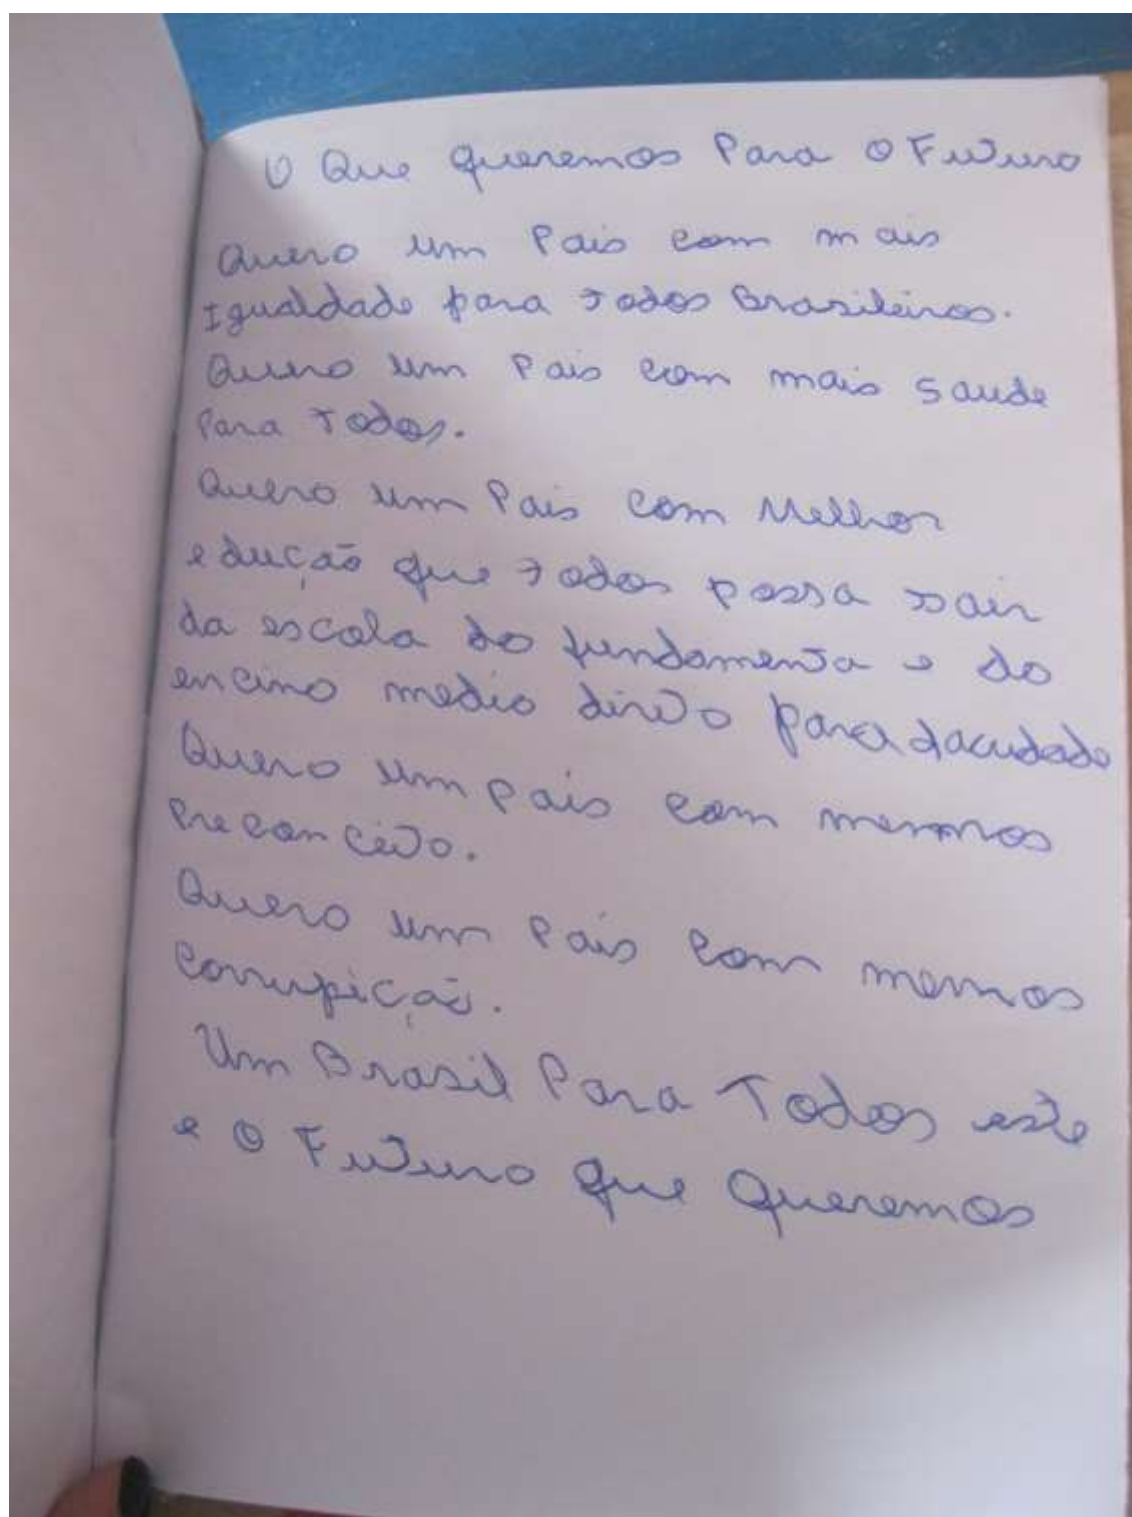 O Que queremos Para O Futuro
Quero um Pais com mais
Igualdade para todos Brasileiros.
Quero um Pais com mais saude
Para Todos.
Quero um Pais com Melhor
edução que todos possa sair
da escola do fundamenta e do
encino medio direto para facudade
Quero um pais com mennos
Preconceito.
Quero um Pais com memos
Corrupição.
Um Brasil Para Todos este
e o Futuro que Queremos